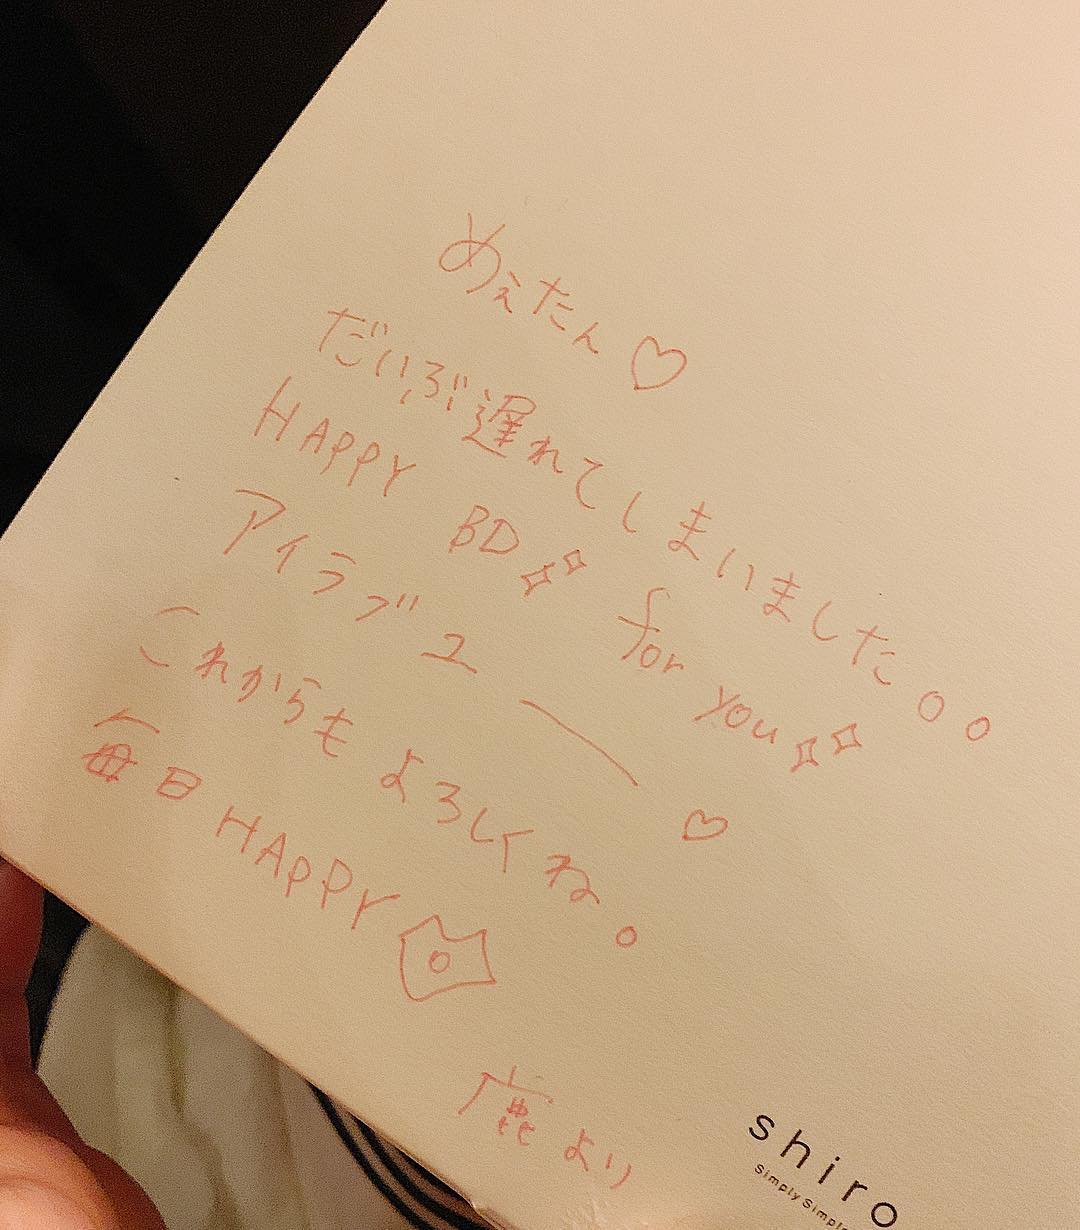 めぇたん♡
だいぶ遅れてしまいました。。
HAPPY BD✧✧ for you✧✧
アイラブユー♡
これからもよろしくね。
毎日HAPPY
鹿より
shiro
Simply Simple